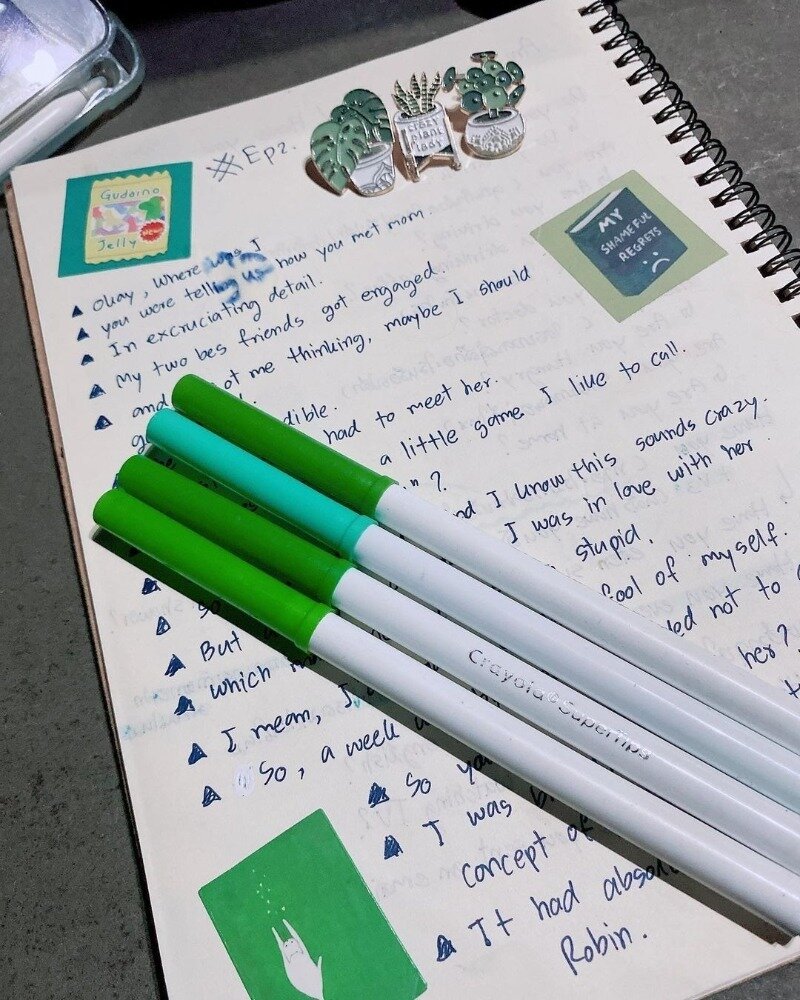 #Ep2.
CRAZY
PLANT
LADY
Gudaino
Jelly
New!
MY
SHAMEFUL
REGRETS
▲ Okay, where was I
▲ you were telling us how you met mom.
▲ In excruciating detail.
▲ My two bes friends got engaged.
▲ and got me thinking, maybe I should
dible.
had to meet her.
a little game I like to call.
?
and I know this sounds crazy.
I was in love with her
stupid.
fool of myself.
▲ So
ded not to
▲ But
her?
▲ which
▲ I mean, I
▲ So, a week
▲ So you
▲ I was
concept of
▲ It had absol
Robin.
Crayola® Supertips